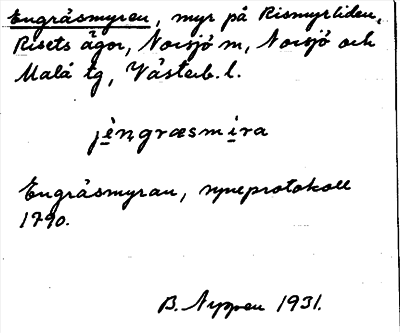 Engräsmyren, myr på Rismyrliden,
Risets ägor, Norsjö m, Norsjö och
Malå tg, Västerb. l.
jèngræsmira
Engräsmyran, syneprotokoll
1790.
B. Nyppen 1931.